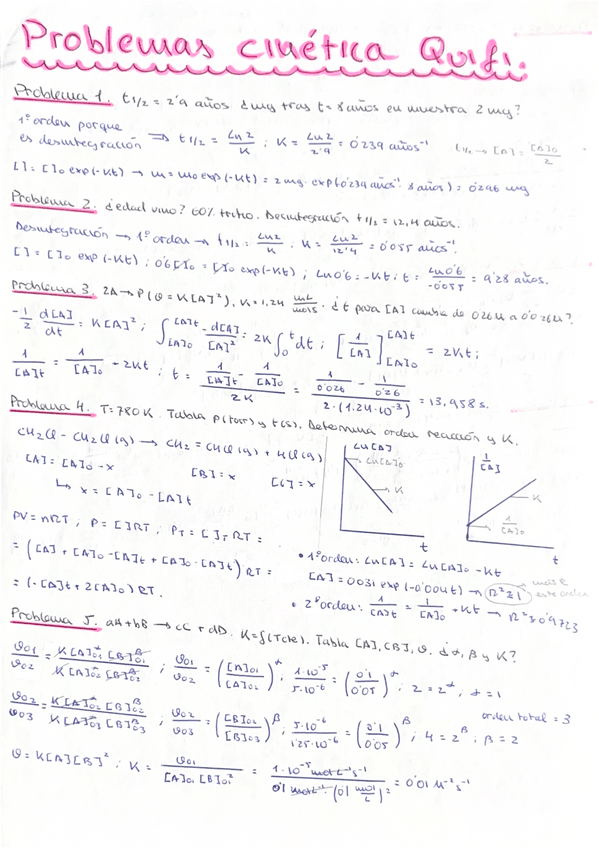 Problemas cinética Quifi.
Problema 1. t1/2 = 2'9 años ¿mg tras t = 8 años en muestra 2 mg?
1º orden porque es desintegración ⟹ t1/2 = Ln2/K ; K = Ln2/2'9 = 0'239 años⁻¹    t1/2 → [A] = [A]0/2
[ ] = [ ]0 exp(-Kt) → m = m0 exp(-Kt) = 2 mg · exp(0'239 años⁻¹ · 8 años) = 0'296 mg
Problema 2. ¿edad vino? 60% tritio. Desintegración t1/2 = 12,4 años.
Desintegración → 1º orden → t1/2 = Ln2/K ; K = Ln2/12'4 = 0'055 años⁻¹.
[ ] = [ ]0 exp(-Kt) ; 0'6[ ]0 = [ ]0 exp(-Kt) ; Ln0'6 = -Kt ; t = Ln0'6/-0'055 = 9'28 años.
Problema 3. 2A → P (ϑ = K[A]²), K = 1,24 mL/mol s · ¿t para [A] cambia de 0'26M a 0'026M?
-1/2 d[A]/dt = K[A]² ; ∫[A]0 [A]t -d[A]/[A]² = 2K ∫0 t dt ; [1/[A]] [A]0 [A]t = 2Kt ;
1/[A]t = 1/[A]0 - 2Kt ; t = (1/[A]t - 1/[A]0)/2K = (1/0'026 - 1/0'26)/2·(1.24·10⁻³) = 13.958 s.
Problema 4. T = 780 K. Tabla P(torr) y t(s). Determina orden reacción y K.
CH2Cl - CH2Cl (g) → CH2 = CHCl (g) + HCl (g)
Ln[A]
Ln[A]0
K
t
1/[A]
K
1/[A]0
t
[A] = [A]0 - x    [B] = x    [C] = x
↳ x = [A]0 - [A]t
PV = nRT ; P = [ ]RT ; PT = [ ]T RT =
= ([A] + [A]0 - [A]t + [A]0 - [A]t) RT =
= (-[A]t + 2[A]0) RT.
• 1º orden: Ln[A] = Ln[A]0 - Kt
[A] = 0'031 exp(-0'004t) → R² ≅ 1    este orden
• 2º orden: 1/[A]t = 1/[A]0 + Kt → R² ≅ 0'9723
Problema 5. aA + bB → cC + dD. K = f(Tcte). Tabla [A], [B], ϑ. ¿α, β y K?
ϑ01/ϑ02 = K[A]01^α [B]01^β / K[A]02^α [B]02^β ; ϑ01/ϑ02 = ([A]01/[A]02)^α ; 1·10⁻⁵/5·10⁻⁶ = (0'1/0'05)^α ; 2 = 2^α ; α = 1
orden total = 3
ϑ02/ϑ03 = K[A]02^α [B]02^β / K[A]03^α [B]03^β ; ϑ02/ϑ03 = ([B]02/[B]03)^β ; 5·10⁻⁶/1'25·10⁻⁶ = (0'1/0'05)^β ; 4 = 2^β ; β = 2
ϑ = K[A][B]² ; K = ϑ01/[A]01 [B]01² = 1·10⁻⁵ mol L⁻¹ s⁻¹ / 0'1 mol L⁻¹ (0'1 mol/L)² = 0'01 M⁻² s⁻¹